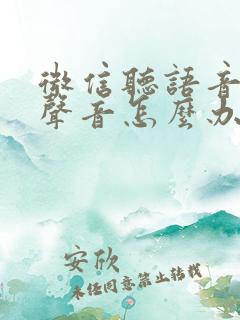 微信聽語音
聲音怎麼办
安欣
未经同意禁止转载